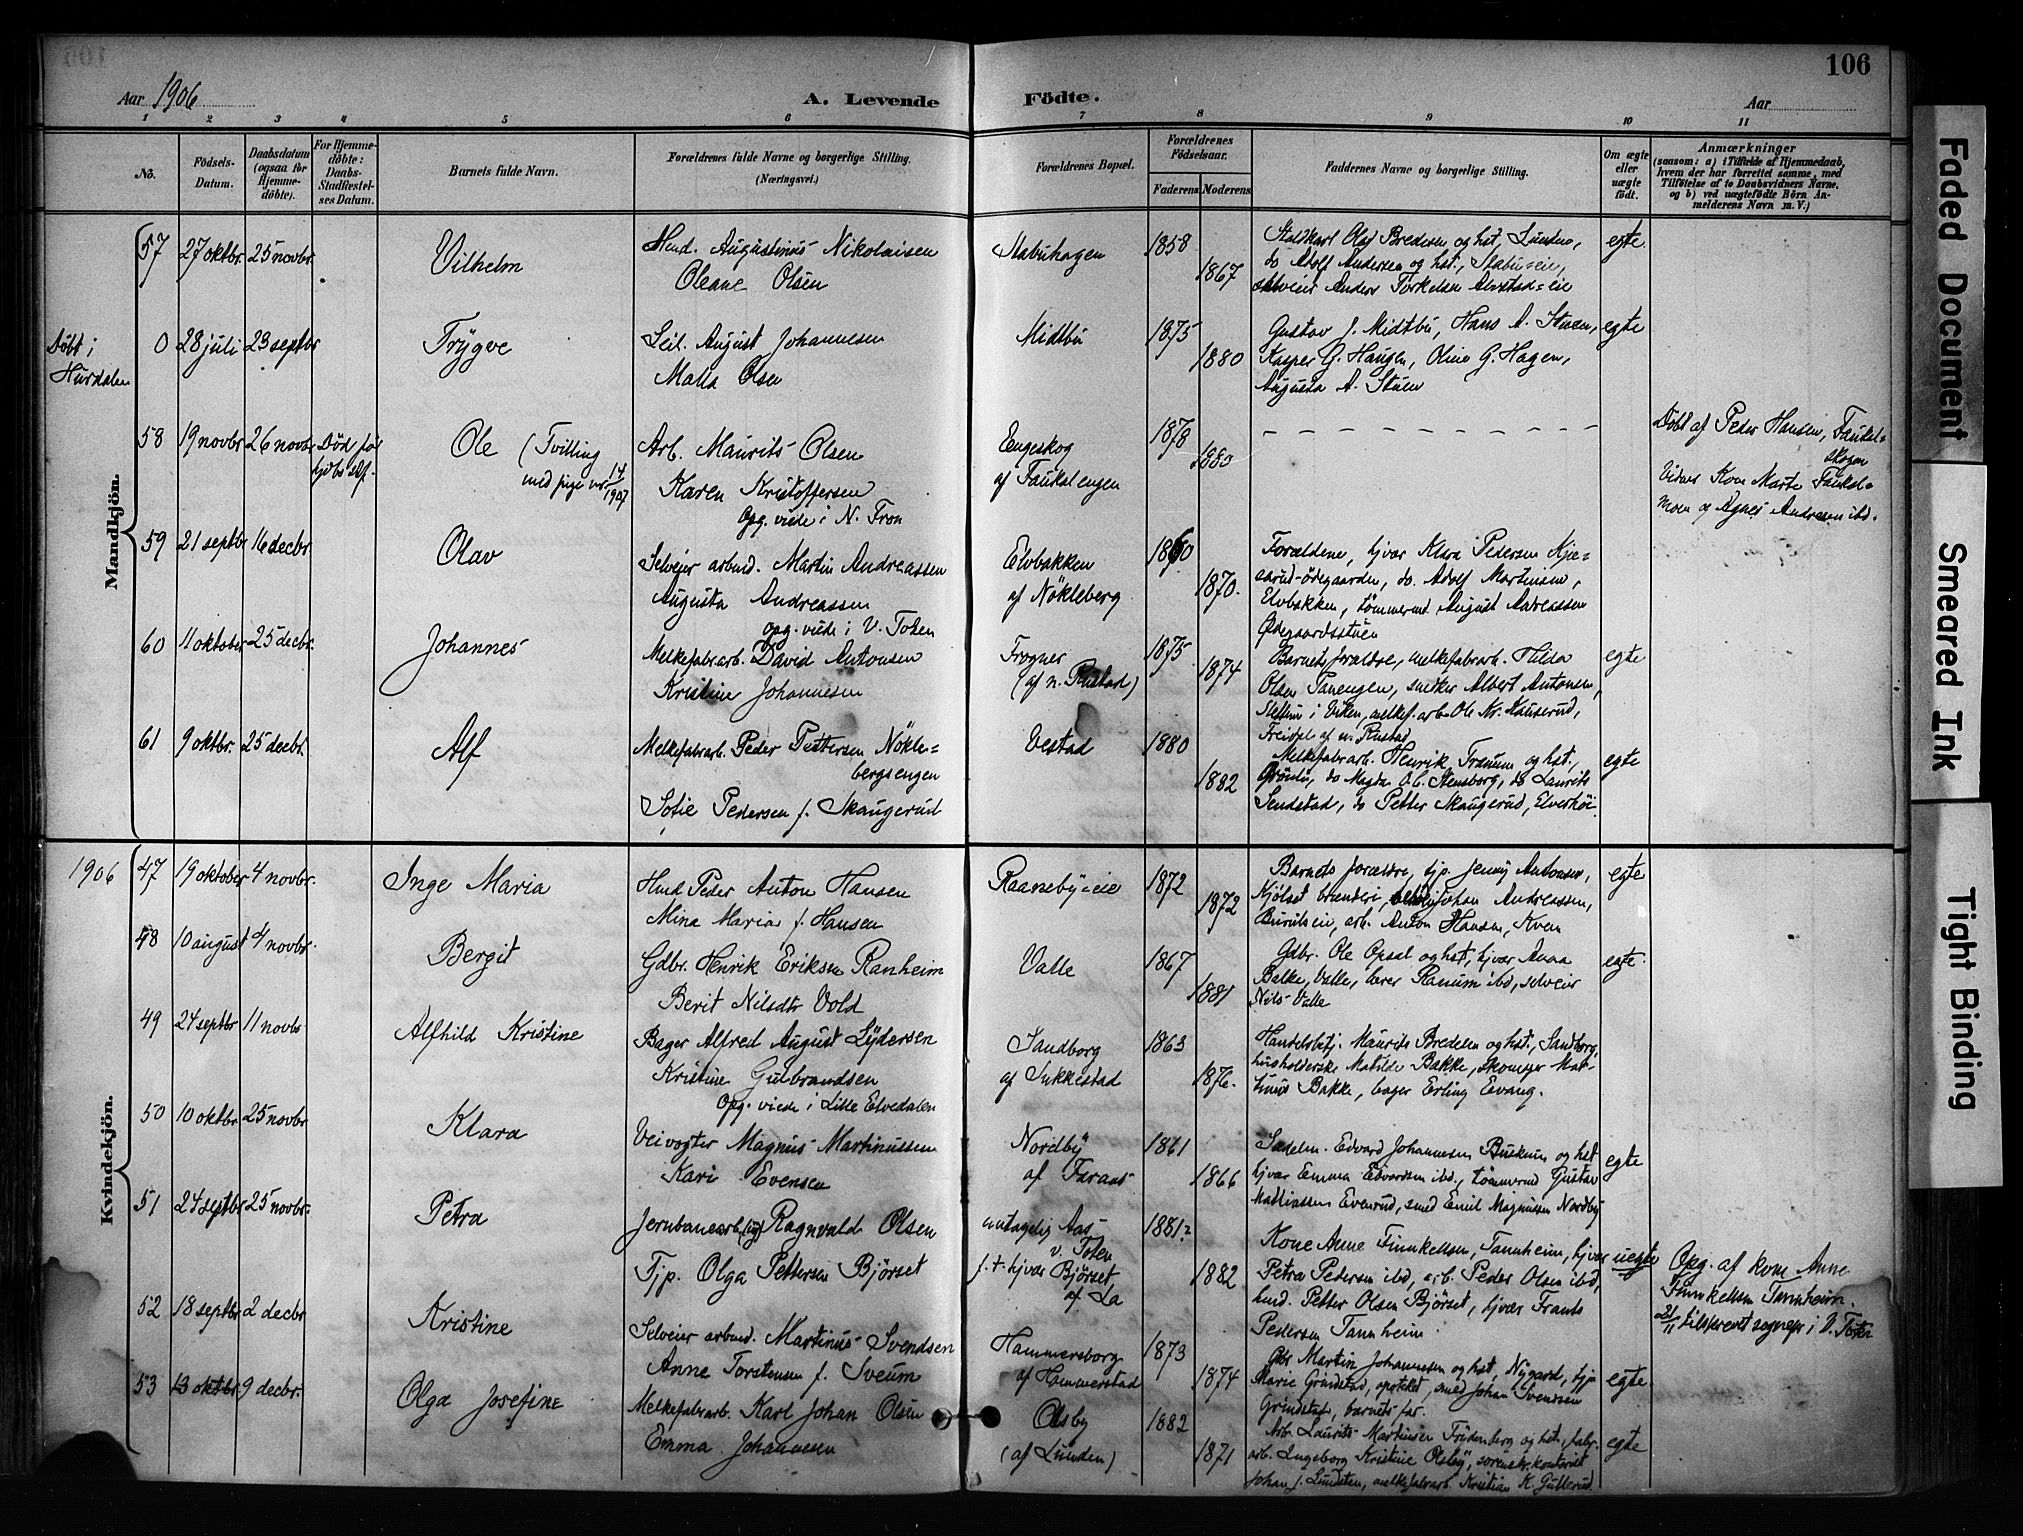 106
Aar 1906
A. Levende
Födte.
Aar
1 2 3 4 5 6 7 8 9 10 11
No.
Födsels-Datum.
Daabsdatum (ogsaa for Hjemmedöbte).
For Hjemmedöbte: Daabs-Stadfæstelses Datum.
Barnets fulde Navn.
Forældrenes fulde Navne og borgerlige Stilling.
(Næringsvei.)
Forældrenes Bopæl.
Forældrenes Födselsaar.
Faderens Moderens
Faddernes Navne og borgerlige Stilling.
Om ægte eller uægte födt.
Anmærkninger
(saasom: a) i Tilfælde af Hjemmedaab, hvem der har forrettet samme, med Tilföielse af to Daabsvidners Navne, og b) ved uægtefödte Börn Anmelderens Navn m. V.)
Mandkjön.
57 27 oktbr. 25 novbr.
Vilhelm
Hmd. Augustinus Nikolaisen
Oleane Olsen
Stabuhagen
1858
1867
Staldkarl Olaf Bredesen og hst, Lunden,
do Adolf Andersen og hst., Stabu-eie,
selveier Anders Torkelsen Alvstad-eie
egte
Döbt i
Hurdalen
0 28 juli 23 septbr
Trygve
Seil. August Johannesen
Malla Olsen
Midtbu
1875
1880
Gustav J. Midtbu, Hans A. Stuen,
Kasper G. Haugen, Oline G. Hagen,
Augusta A. Stuen
egte
58 19 novbr 26 novbr
Ole (Tvilling
med pige nr. 14
1907
Arb. Maurits Olsen
Karen Kristoffersen
Opg. viede i N. Fron
Engeskog
af Faukalengen
1878
1880
Döbt af Peder Hansen, Faukal-
skogen
Vidner Kone Marte Faukal-
moen og Agnes Andresen ibd.
59 21 septbr 16 decbr.
Olav
Selveier arbmd. Martin Andreassen
Augusta Andreassen
opg. viede i V. Toten
Elvbakken
af Nökleberg
1860
1870.
Forældrene, hjvær Klara Pedersen Kjæ-
sarud-ödegaarden, do. Adolf Martinsen,
Elvbakken, tömmermd August Andreassen
Ödegaardsstuen
60 11 oktober 25 decbr.
Johannes
Melkefabrarb. David Antonsen
Kristine Johannesen
Frogner
(af n. Rustad)
1875
1874
Barnets forældre, melkefabrarb. Hilda
Olsen Tanengen, snedker Albert Antonsen,
Slettum i Viken, melkef. arb. Ole Kr. Hauserud,
Freidal af n. Rustad
egte
61 9 oktbr. 25 decbr.
Alf
Melkefabrarb. Peder Pettersen Nökle-
bergsengen
Sofie Pedersen f. Skaugerud
Vestad
1880
1882
Melkefabrarb. Henrik Tranum og hst.,
Gröndi, do Magda O. C. Stensborg, do Laurits
Sendstad, do Petter Skaugerud, Elverhöi
egte
1906
Kvindekjön.
47 19 oktober 4 novbr.
Inge Maria
Hmd Peder Anton Hansen
Mina Maria f. Hansen
Raaneby-eie
1872
1872
Barnets forældre, tjp. Jenny Antonsen,
Kjölset brænderi, Johan Andreassen,
eie, arb. Anton Hansen, Kvem
egte
48 10 august 4 novbr.
Bergit
Gdbr. Henrik Eriksen Ranheim
Berit Nilsdtr Vold
Valle
1867
1881
Gdbr. Ole Opsal og hst, hjvær Anna
Balke, Valle, lærer Ranum ibd, selveier
Nils Valle
egte
49 24 septbr 11 novbr
Alfhild Kristine
Bager Alfred August Lydersen
Kristine Gulbrandsen
Opg. viede i Lille Elvedalen
Sandborg
af Sukkestad
1863
1876.
Handelsbtj. Maurits Bredesen og hst, Sandborg,
husholderske Matilde Bakke, skomager Mat-
hinus Bakke, bager Erling Evang.
50 10 oktbr 25 novbr
Klara
Veivogter Magnus Martinussen
Kari Evensen
Nordby
af Faraas
1861
1866
Sadelm. Edvard Johannesen Buskum og hst
hjvær Emma Edvardsen ibd., tömmermd Gustav
Mathiassen Evenrud, smed Emil Magnussen Nordby
egte
51 24 septbr 25 novbr.
Petra
Jernbanearb. (ug) Ragnvald Olsen
Tjp. Olga Pettersen Björset
antagelig Aas
V. Toten
f. t. hjvær Björset
af La
1881?
1882
Kone Anne Finnkelsen, Tannheim, hjvær
Petra Pedersen ibd, arb. Peder Olsen ibd,
husd. Petter Olsen Björset, hjvær Frants
Pedersen Tannheim.
uegte
Opg. af kone Anne
Finnkelsen Tannheim.
21/11 tilskrevet sognepr. i V. Toten
52 18 septbr 2 decbr
Kristine
Selveier arbmd. Martinus Svendsen
Anne Torstensen f. Sveum
Hammersborg
af Hammerstad
1873
1874
Gbr Martin Johannesen og hst, Nygard, tjp
Marie Grindstad, apoteket, smed Johan Svendsen
Grindstad, barnets far.
egte
53 13 oktbr. 9 decbr.
Olga Josefine
Melkefabrarb. Karl Johan Olsen
Emma Johannesen
Olsby
(af Lunden)
1882
1871
Arb. Laurits Martinsen Frydenberg og hst., fabr.
arb. Ingeborg Kristine Olsby, sorenskr.kontorist
Johan J. Lundsten, melkefabrarb. Kristian K. Gullerud.
egte
Faded Document
Smeared Ink
Tight Binding